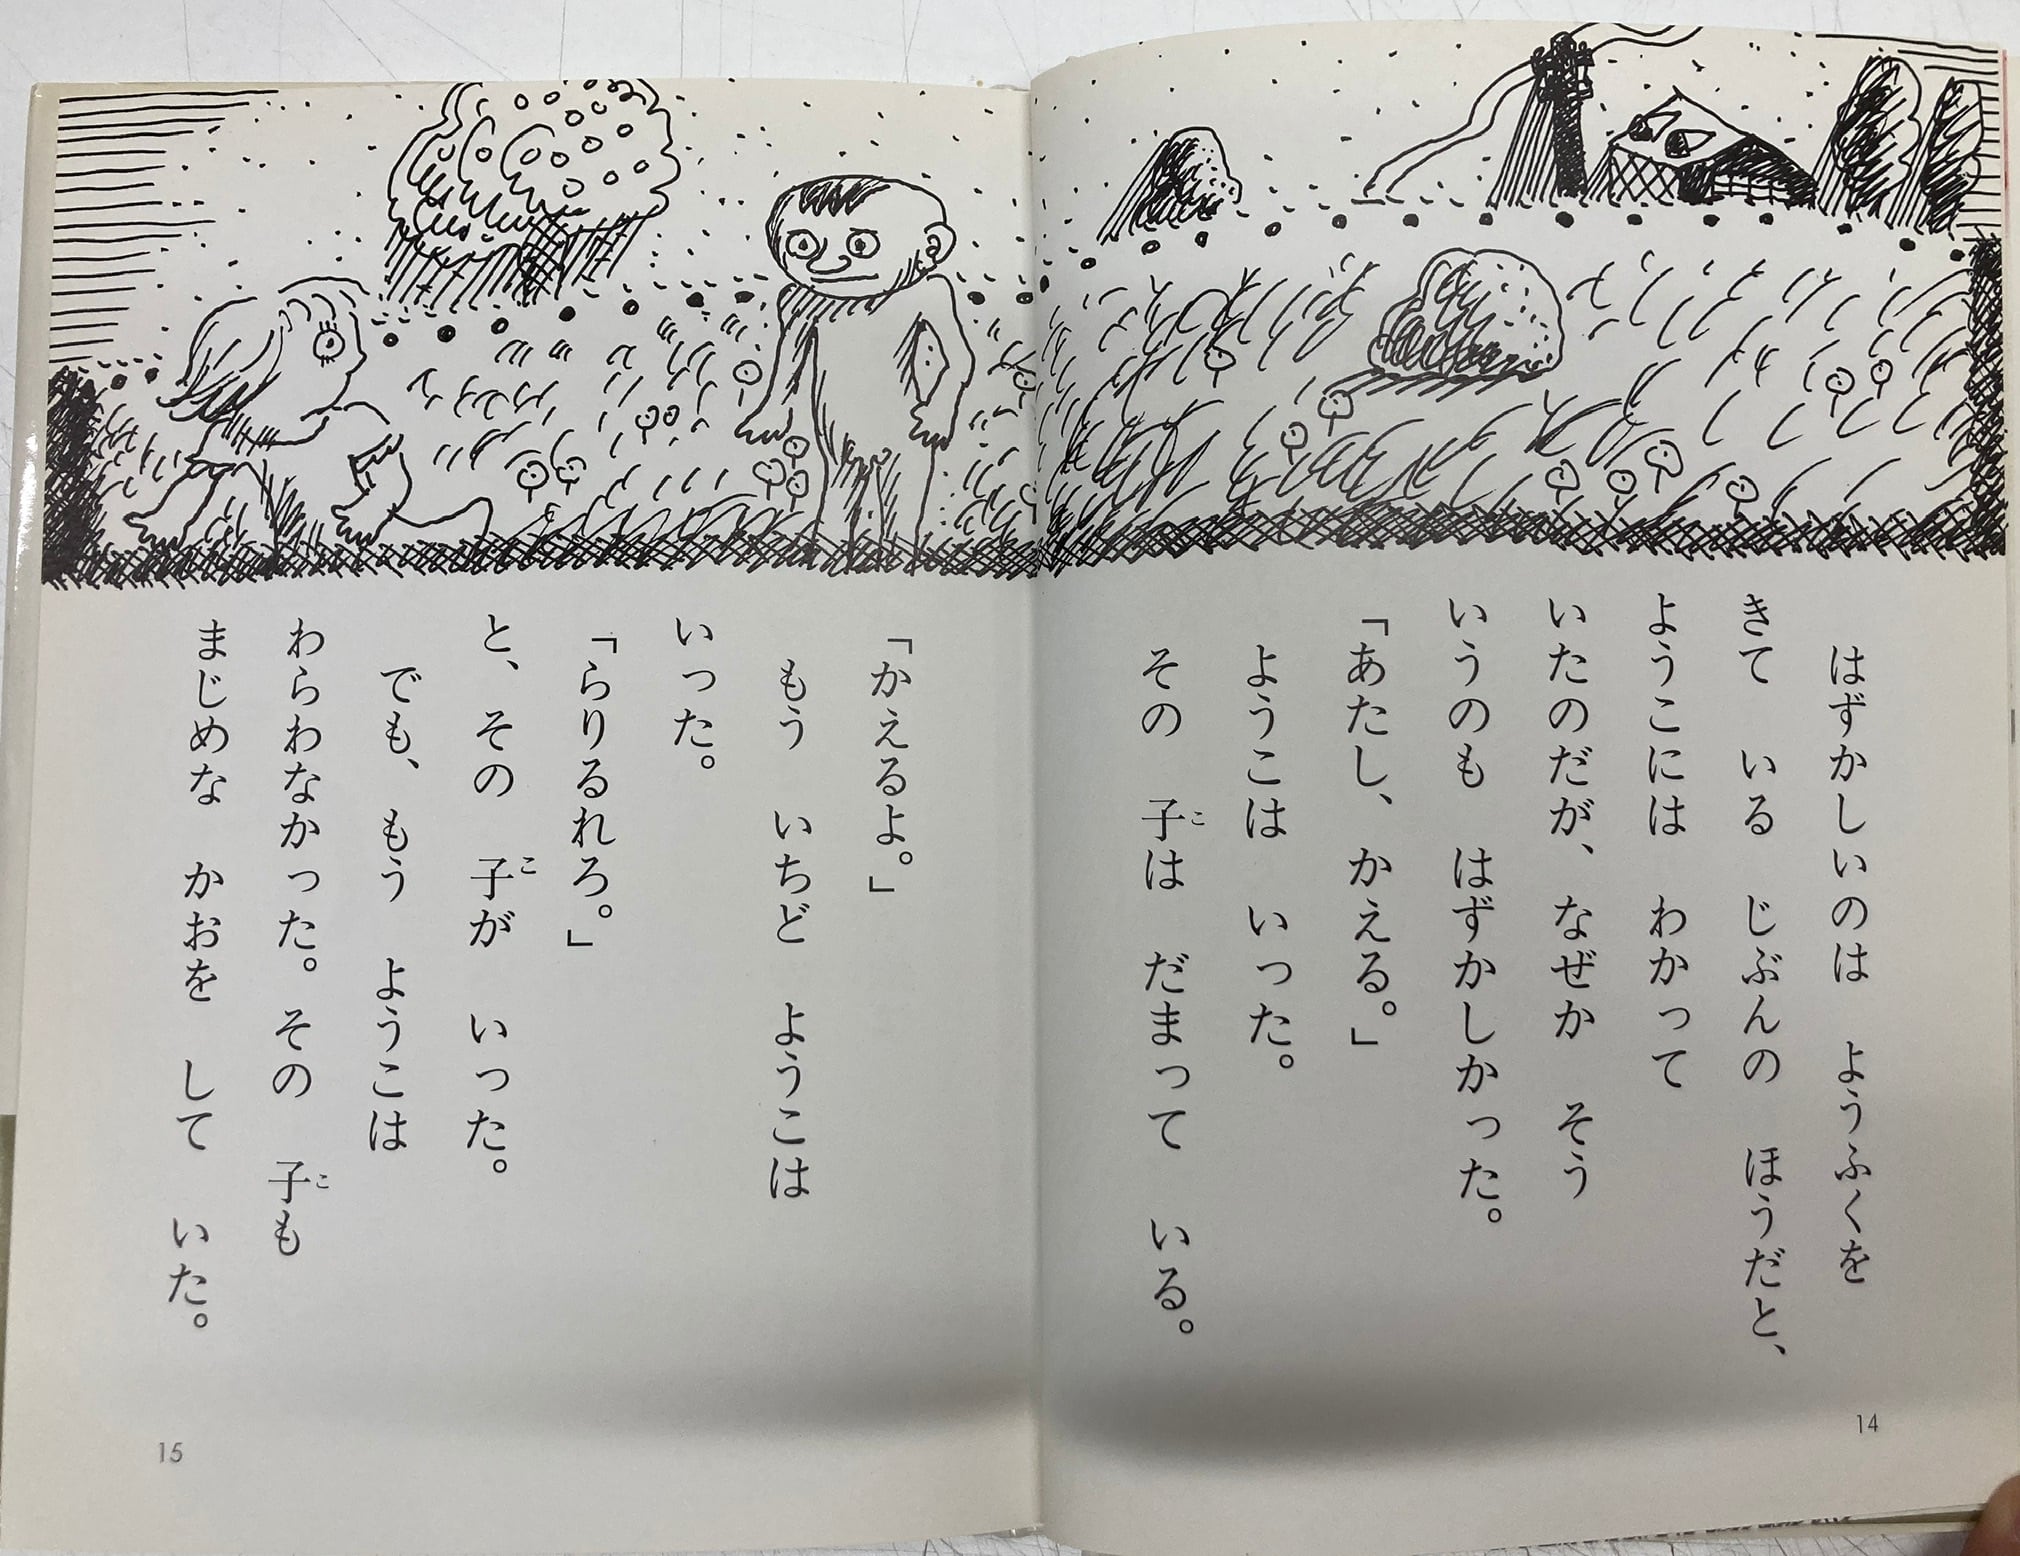 はずかしいのは　ようふくを
きて　いる　じぶんの　ほうだと、
ようこには　わかって
いたのだが、なぜか　そう
いうのも　はずかしかった。
「あたし、かえる。」
ようこは　いった。
その　子は　だまって　いる。
こ
14
「かえるよ。」
もう　いちど　ようこは
いった。
「らりるれろ。」
と、その　子が　いった。
こ
でも、もう　ようこは
わらわなかった。その　子も
こ
まじめな　かおを　して　いた。
15